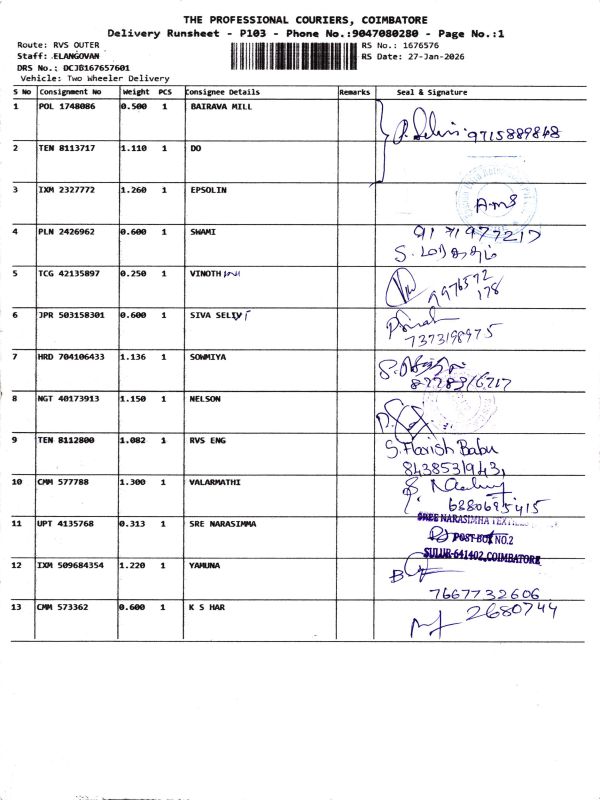 THE PROFESSIONAL COURIERS, COIMBATORE
Delivery Runsheet - P103 - Phone No.:9047080280 - Page No.:1
Route: RVS OUTER
RS No.: 1676576
Staff: ELANGOVAN
RS Date: 27-Jan-2026
DRS No.: DCJB167657601
Vehicle: Two Wheeler Delivery
S No Consignment No Weight PCS Consignee Details Remarks Seal & Signature
1 POL 1748086 0.500 1 BAIRAVA MILL
9715889848
2 TEN 8113717 1.110 1 DO
3 IXM 2327772 1.260 1 EPSOLIN
AMS
4 PLN 2426962 0.600 1 SWAMI
91 71977217
5 TCG 42135897 0.250 1 VINOTH
9976572
178
6 JPR 503158301 0.600 1 SIVA SELVI
7373198975
7 HRD 704106433 1.136 1 SOWMIYA
8 NGT 40173913 1.150 1 NELSON
9 TEN 8112800 1.082 1 RVS ENG
S. Harish Babu
8438531943
10 CMM 577788 1.300 1 VALARMATHI
6880695415
11 UPT 4135768 0.313 1 SRE NARASIMMA
SREE NARASIMHA
POST BOX NO.2
SULUR-641402, COIMBATORE
12 IXM 509684354 1.220 1 YAMUNA
7667732606
13 CMM 573362 0.600 1 K S HAR
2680744